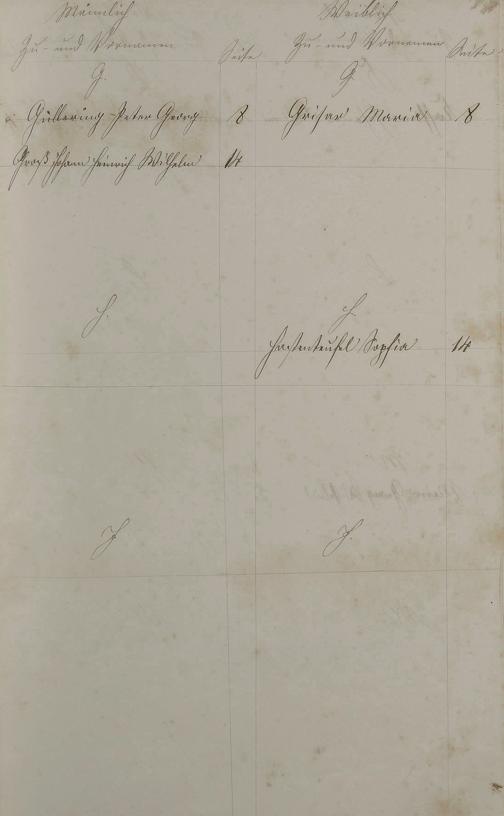 Männlich Weiblich
Zu- und Vornamen Seite Zu- und Vornamen Seite
G. G.
Güllering Peter Georg 8 Grisar Maria 8
Groß Johann Heinrich Wilhelm 14
H. H.
Hastenteufel Sophia 14
J. J.